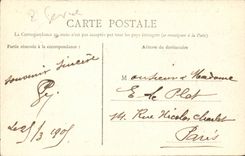 CARTE POSTALE
La Correspondance au recto n'est pas acceptée par tous les pays étrangers (se renseigner à la Poste)
Partie réservée à la correspondance
Adresse du destinataire
souvenir sincère
Le 25/3 1905
Monsieur & Madame
E Le Plat
14. Rue Nicolas Charlet
Paris